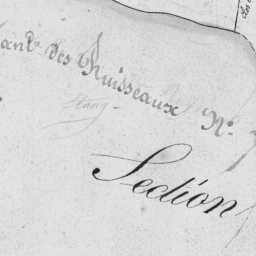 des Ruisseaux N°
Etang
Section